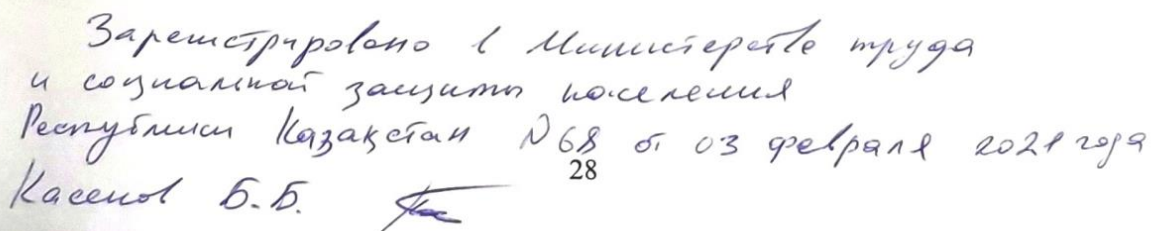 Зарегистрировано в Министерстве труда
и социальной защиты населения
Республики Казақстан №68 от 03 февраля 2021 года
28
Касенов Б.Б.